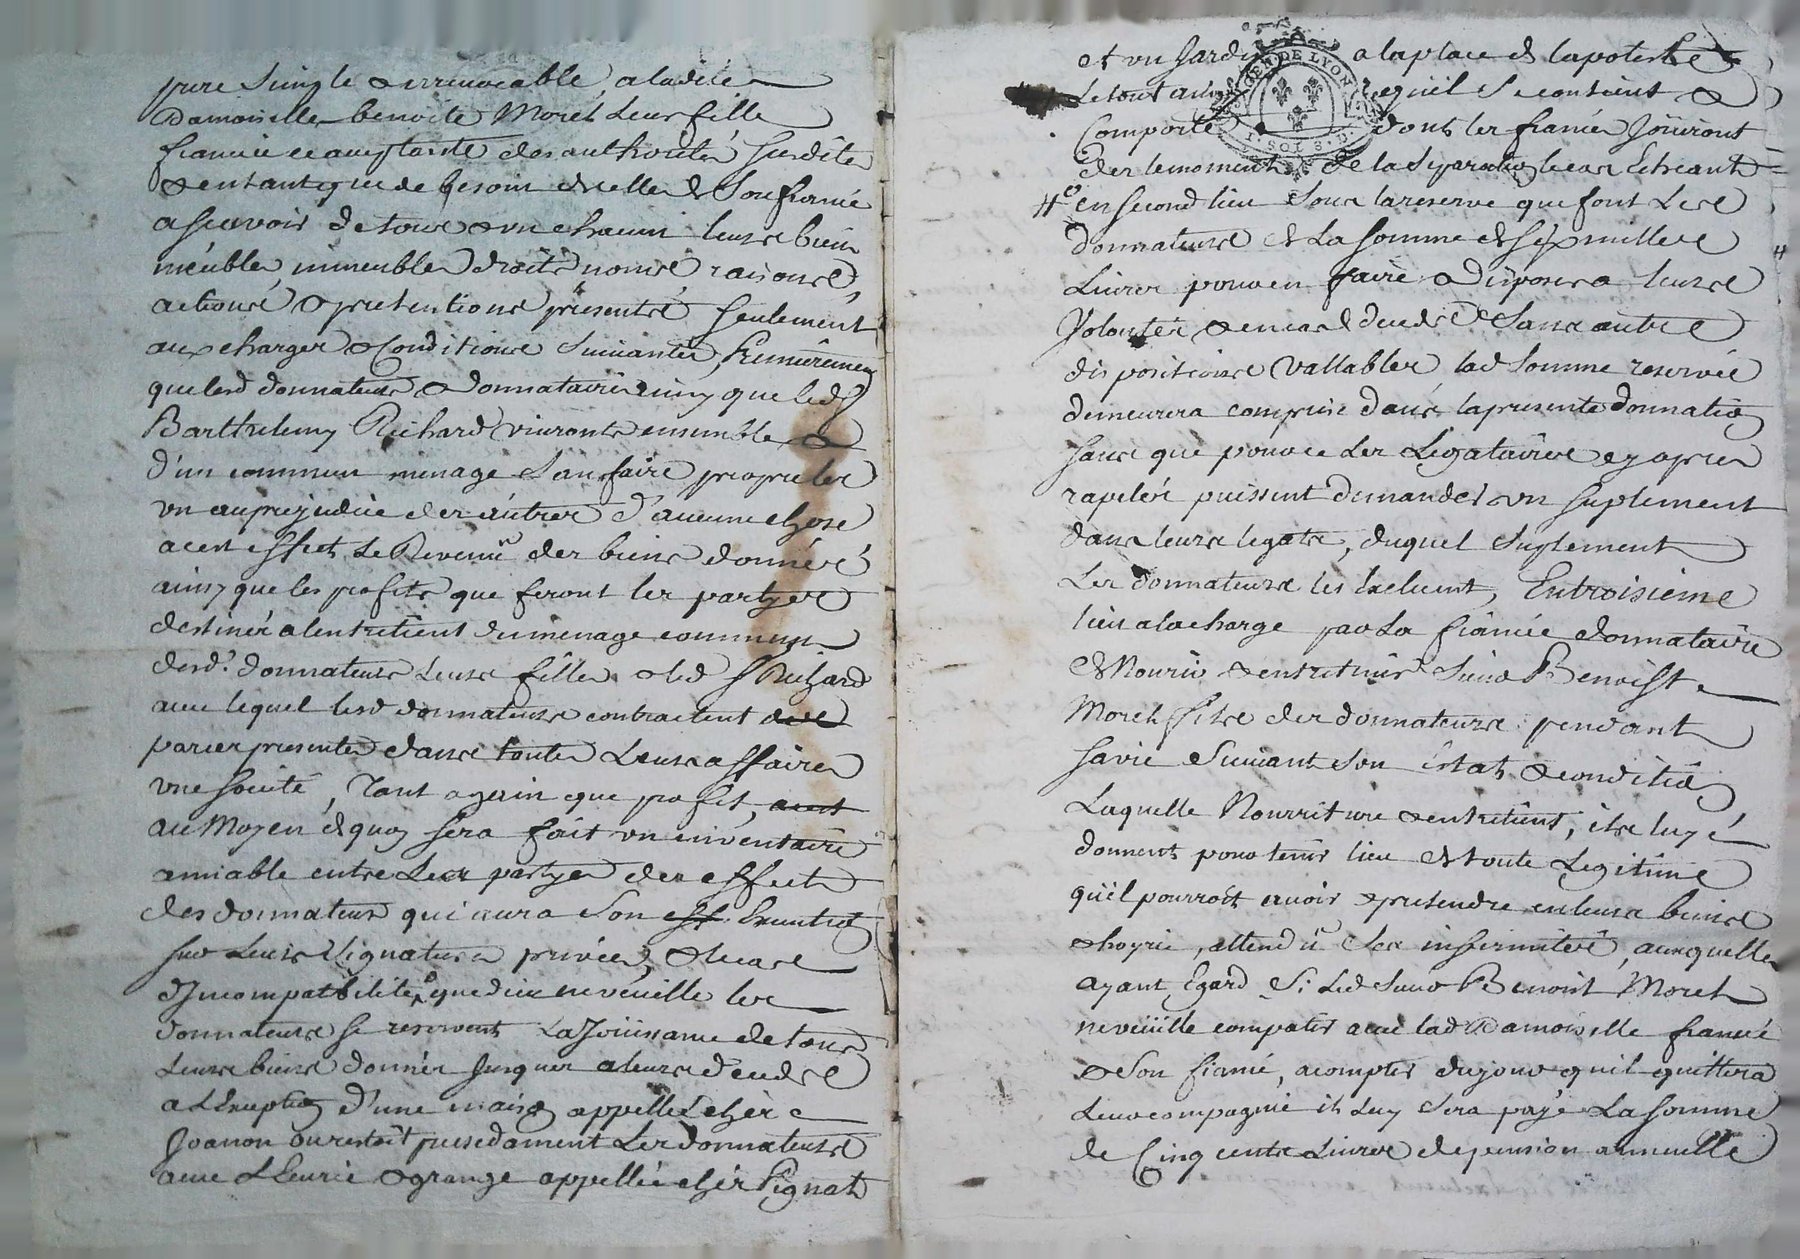 pure simple & irrevocable, a ladite
Damoiselle benoite Morel leur fille
fiancée acceptante des authorités susdites
& entant que de besoin d'icelle & son fiancé
a sçavoir de tous & un chacun leurs biens
meubles, immeubles droits noms, raisons,
actions, & pretentions présents seulement
aux charges & Conditions suivantes, Premierement
que lesd donnateurs & donnataire ainsy que led s
Barthelemy Richard vivronts ensemble &
d'un commun menage sans faire propre les
un au prejudice des autres d'aucune chose
a cest effet Le Revenu des biens donnés
ainsy que les profits que feront les partyes
destinés a lentretient du menage commun
desd. donnateurs leurs fille & led s Richard
avec lequel lesd donnateurs contractent
par ces presentes dans toutes Leurs affaires
une societé, Tant a gain que profit,
au Moyen de quoy sera fait un inventaire
amiable entre Les partyes des effects
des donnateurs qui aura son Execution
sur leurs signatures privées, & le cas
d'Incompatibilité, que dieu ne veuille les
donnateurs se reservent La Joüissance de tous
Leurs biens donnés Jusques a leurs décès
a L'Exception d'une maison appellé chez
Joanon ou restoit precedament Les donnateurs
avec L'Ecurie & grange appellée chez Pignat
et un Jardin a la place de
Le tout ainsy & qu'il se contient &
Comporte dont les fiancés Joüiront
des le moment de la separation le cas Echeant
4° en second lieu sous la reserve que font Les
donnateurs de La somme de six mille
Livres pour en faire & disposer a leurs
Volontés & en cas de décès sans autre
dispositions Vallables lad somme reservée
demeurera comprise dans la presente donnation
sans que pour ce Les Legataires cy apres
rapelés puissent demander un suplement
dans leurs legats, duquel suplement
Les donnateurs les Excluent, Entroisieme
lieu a la charge par La fiancée donnataire
de Nourir & entretenir sieur Benoist
Morel fils des donnateurs pendant
sa vie suivant son Estat & condition
Laquelle Nourriture & entretient, ils luy
donnent pour tenir lieu de toute Legitime
qu'il pourroit avoir & pretendre en leurs biens
& hoyrie, attendu ses infirmités, auxquelles
ayant Egard si led sieur Benoist Morel
ne veüille compatir avec lad Damoiselle fiancée
& son fiancé, a compter du jour qu'il quittera
Leur compagnie il Luy sera payé La somme
de Cinq cents Livres de pension annuelle
GEN DE LYON
SOLS